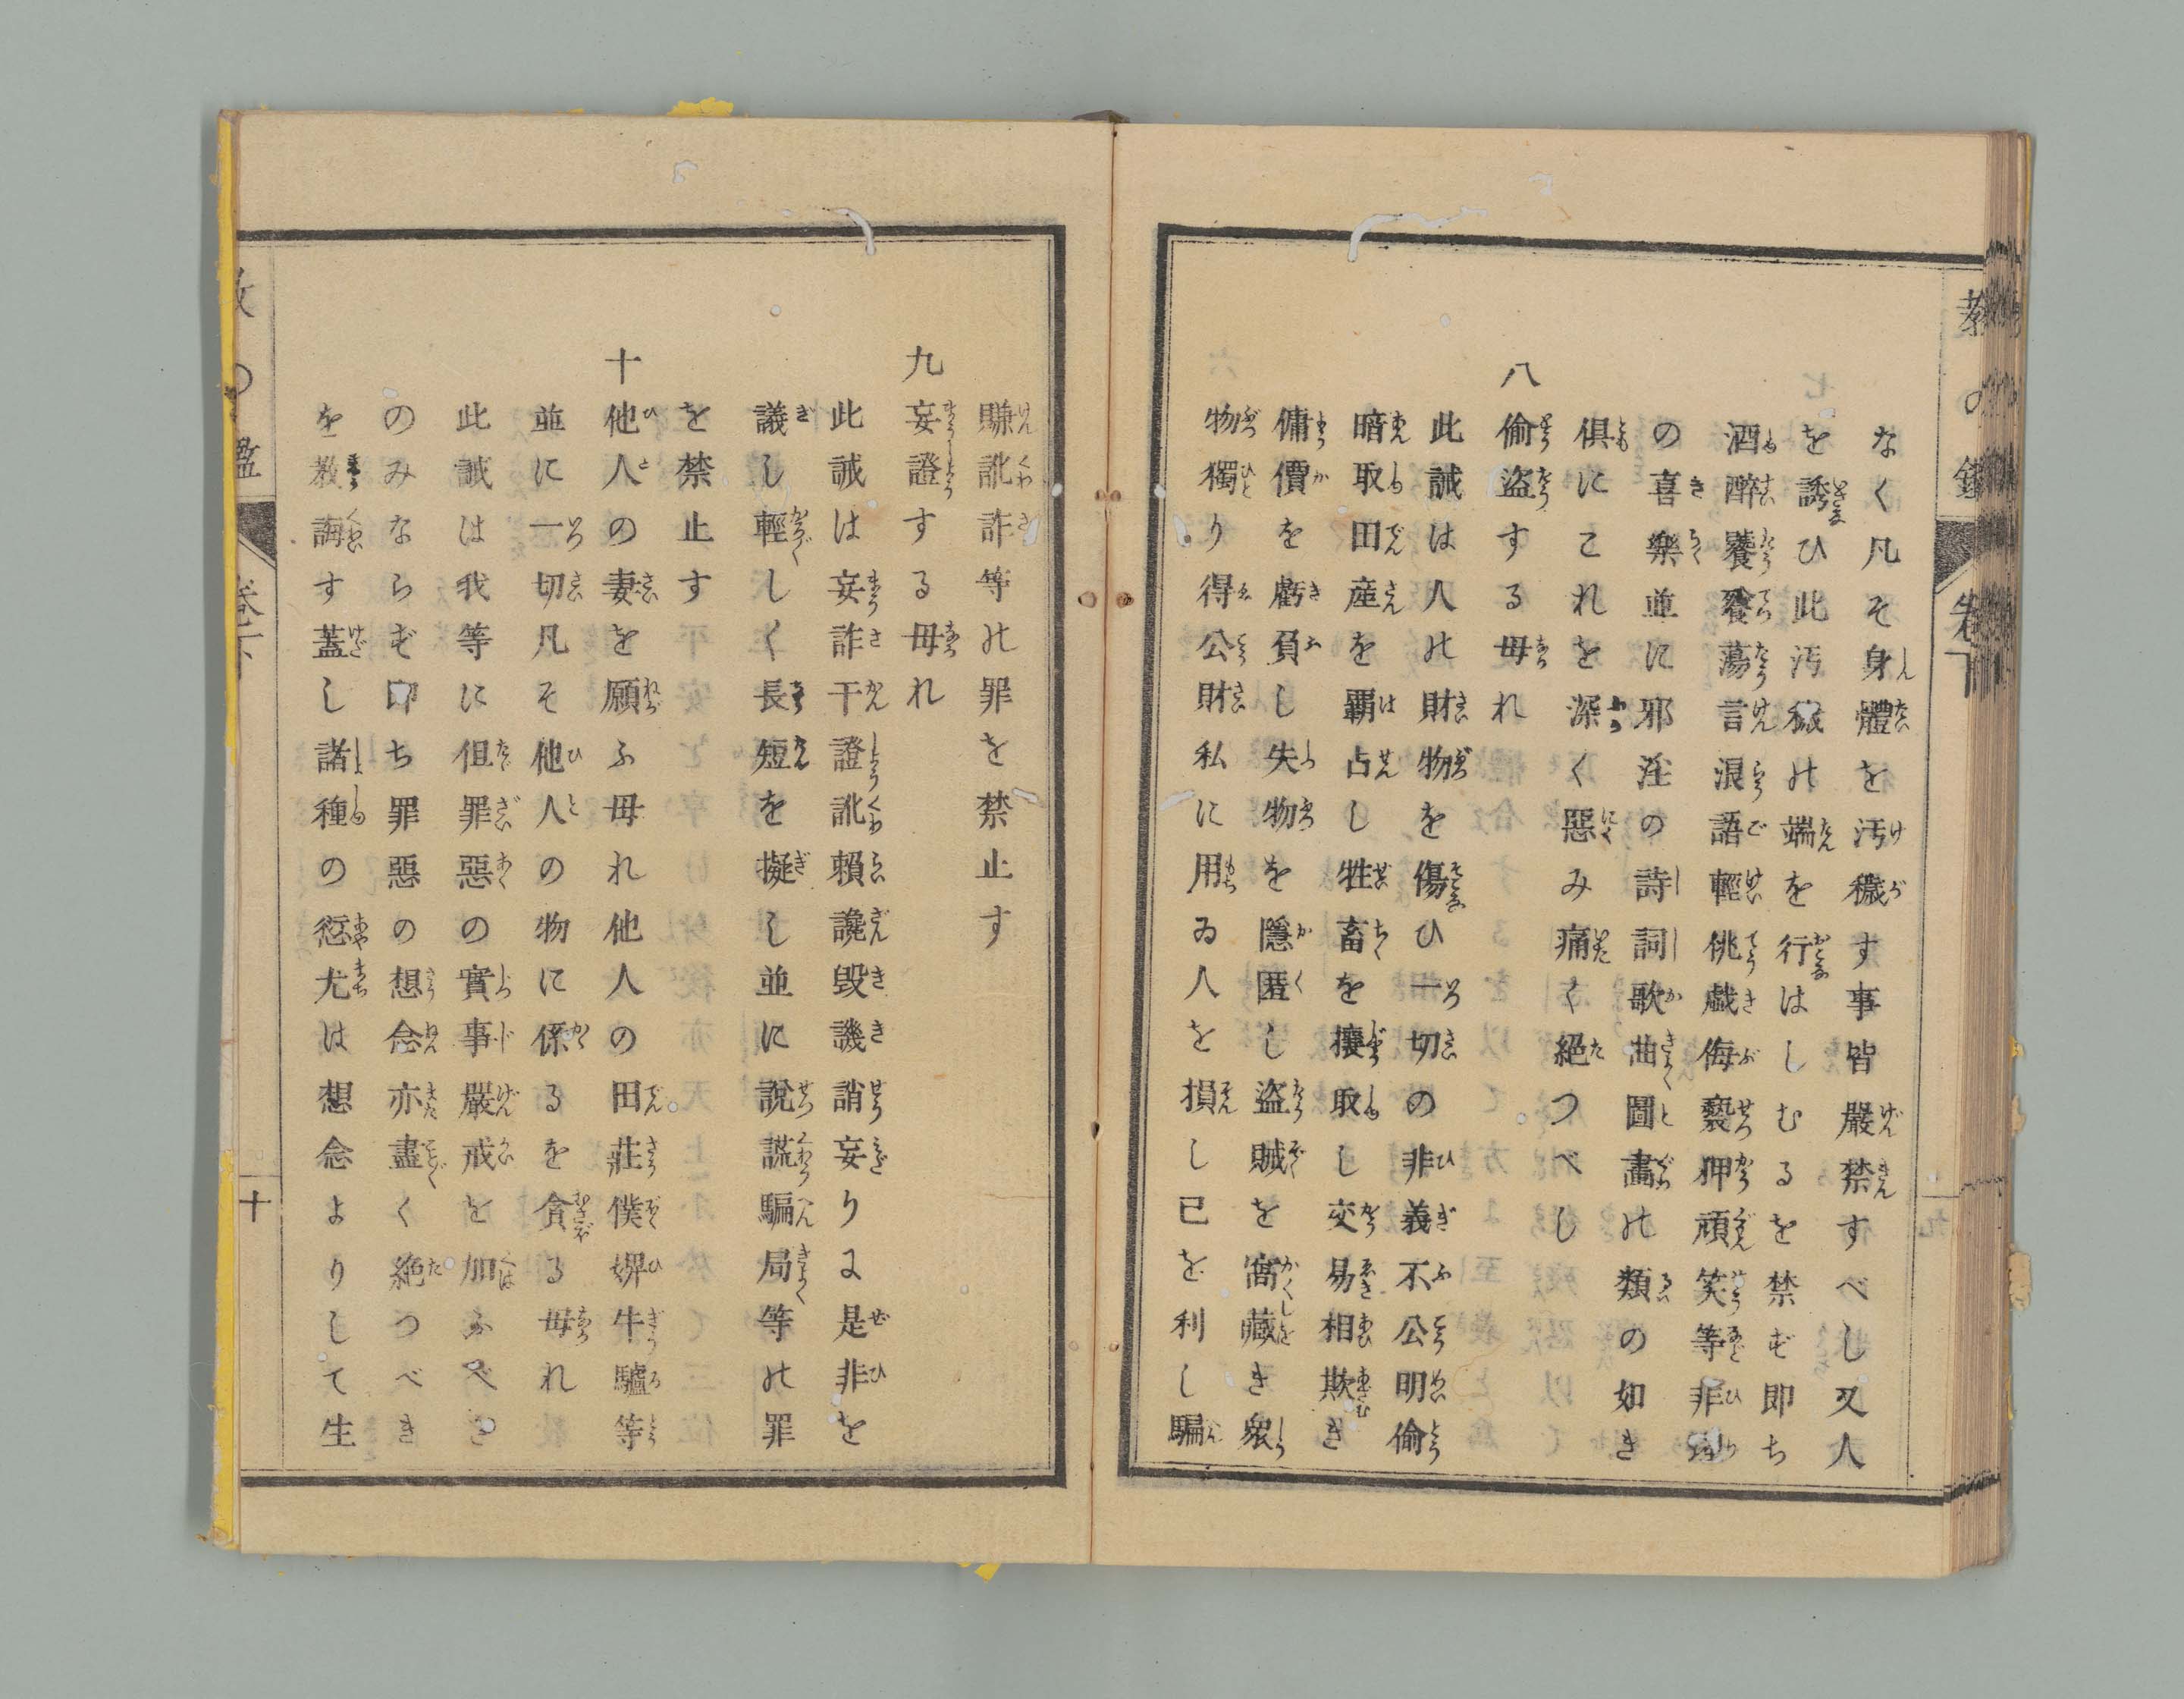 教の鑑 卷下
なく凡そ身體を汚穢す事皆嚴禁すべし又人
を誘ひ此汚穢の端を行はしむるを禁ず即ち
酒醉饕餮蕩言浪語輕佻戯侮褻狎頑笑等非
の喜樂並に邪淫の詩詞歌曲圖畵の類の如き
俱にこれを深く惡み痛く絕つべし
八 偷盜する毋れ
此誡は人の財物を傷ひ一切の非義不公明偷
暗取田産を覇占し牲畜を攘取し交易相欺き
傭價を虧負し失物を隱匿し盜賊を窩藏き衆
物獨り得公財私に用ゐ人を損し己を利し騙
賺訛詐等の罪を禁止す
九 妄證する毋れ
此誡は妄詐干證訛賴讒毀譏誚妄りに是非を
議し輕しく長短を擬し並に說謊騙局等の罪
を禁止す
十 他人の妻を願ふ毋れ他人の田莊僕婢牛驢等
並に一切凡そ他人の物に係るを貪る毋れ
此誡は我等に但罪惡の實事嚴戒を加ふべき
のみならず卽ち罪惡の想念亦盡く絕つべき
を敎誨す蓋し諸種の愆尤は想念よりして生
の鑑 卷下 十